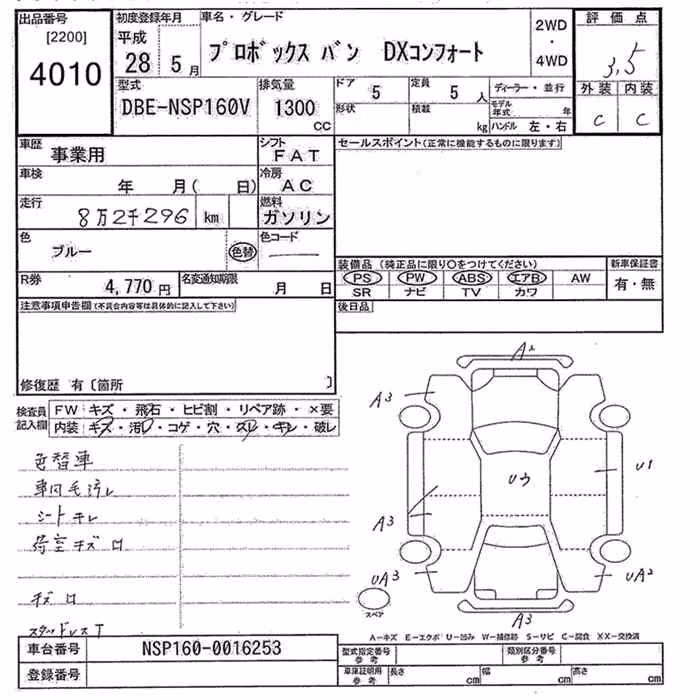 出品番号 初度登録年月 車名・グレード 2WD・4WD 評価点
[2200]
4010
平成
28 5月
プロボックス バン DXコンフォート
3,5
型式 排気量 ドア 5 定員 5人 ディーラー・並行 外装 内装
DBE-NSP160V 1300cc 形状 積載 kg モデル年式 年 C C
ハンドル 左・右
車歴 事業用 シフト FAT セールスポイント(正常に機能するものに限ります)
車検 年 月( 日) 冷房 AC
走行 8万2千296 km 燃料 ガソリン
色 ブルー 色替 色コード
装備品(純正品に限り○をつけてください) 新車保証書
R券 4,770円 名変通知期限 月 日 PS PW ABS エアB AW 有・無
SR ナビ TV カワ
注意事項申告欄(不具合内容等は具体的に記入して下さい) 後日品
修復歴 有〔箇所 〕
検査員記入欄 FW キズ・飛石・ヒビ割・リペア跡・×要
内装 キズ・汚れ・コゲ・穴・スレ・キレ・破レ
色替車
車内毛汚レ
シートキレ
荷室キズ ロ
キズ ロ
スタッドレスT
A2
A3
U1
Uウ
A3
UA3
UA2
スペア
A3
A-キズ E-エクボ U-凹み W-補修跡 S-サビ C-腐食 XX-交換済
車台番号 NSP160-0016253 型式指定番号 参考 類別区分番号 参考
登録番号 車庫証明用 参考 長さ cm 幅 cm 高さ cm